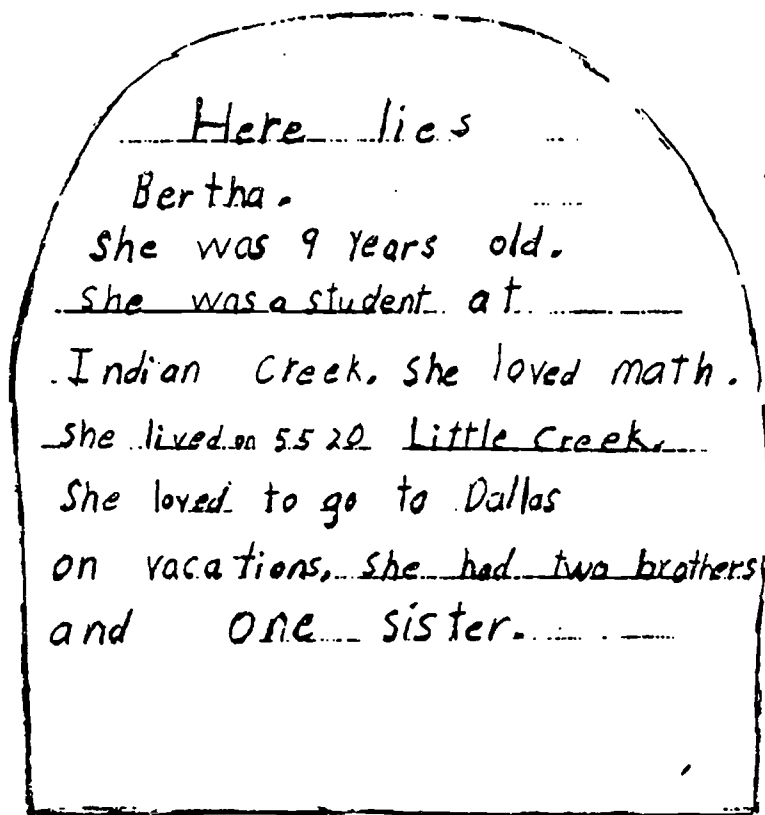 Here lies
Bertha.
She was 9 years old.
She was a student at
Indian Creek. She loved math.
She lived on 5520 Little Creek.
She loved to go to Dallas
on vacations. She had two brothers
and one sister.